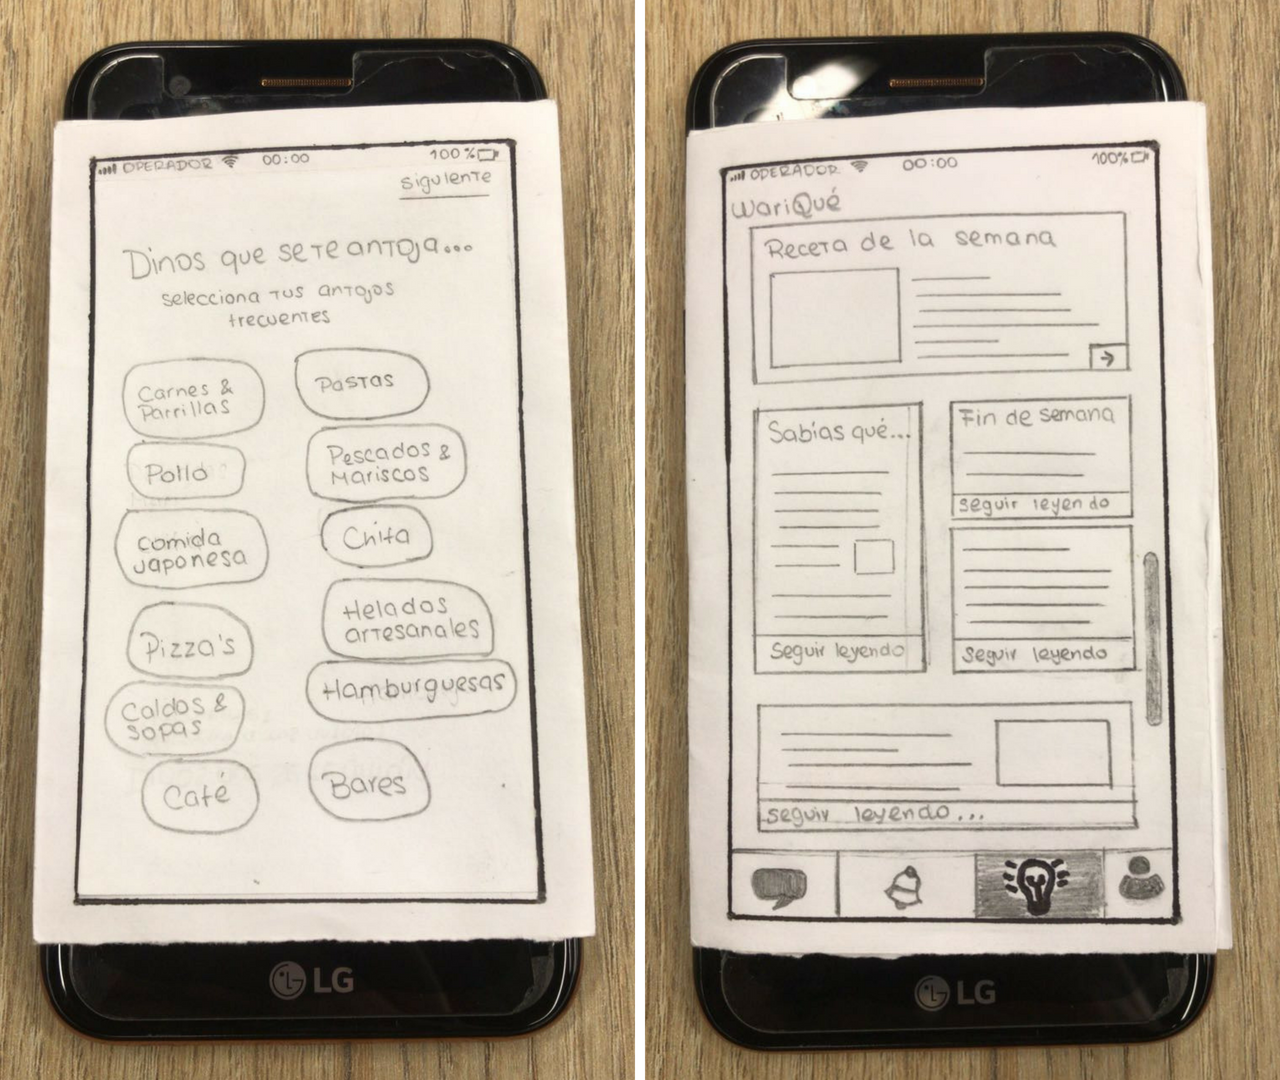 OPERADOR 00:00 100%
siguiente
Dinos que se te antoja...
selecciona tus antojos
frecuentes
Carnes &
Parrillas
Pastas
Pollo
Pescados &
Mariscos
comida
japonesa
Chifa
Pizza's
Helados
artesanales
Caldos &
sopas
Hamburguesas
Café
Bares
LG
OPERADOR 00:00 100%
WariQué
Receta de la semana
Sabías qué...
Seguir leyendo
Fin de semana
seguir leyendo
seguir leyendo
seguir leyendo...
LG